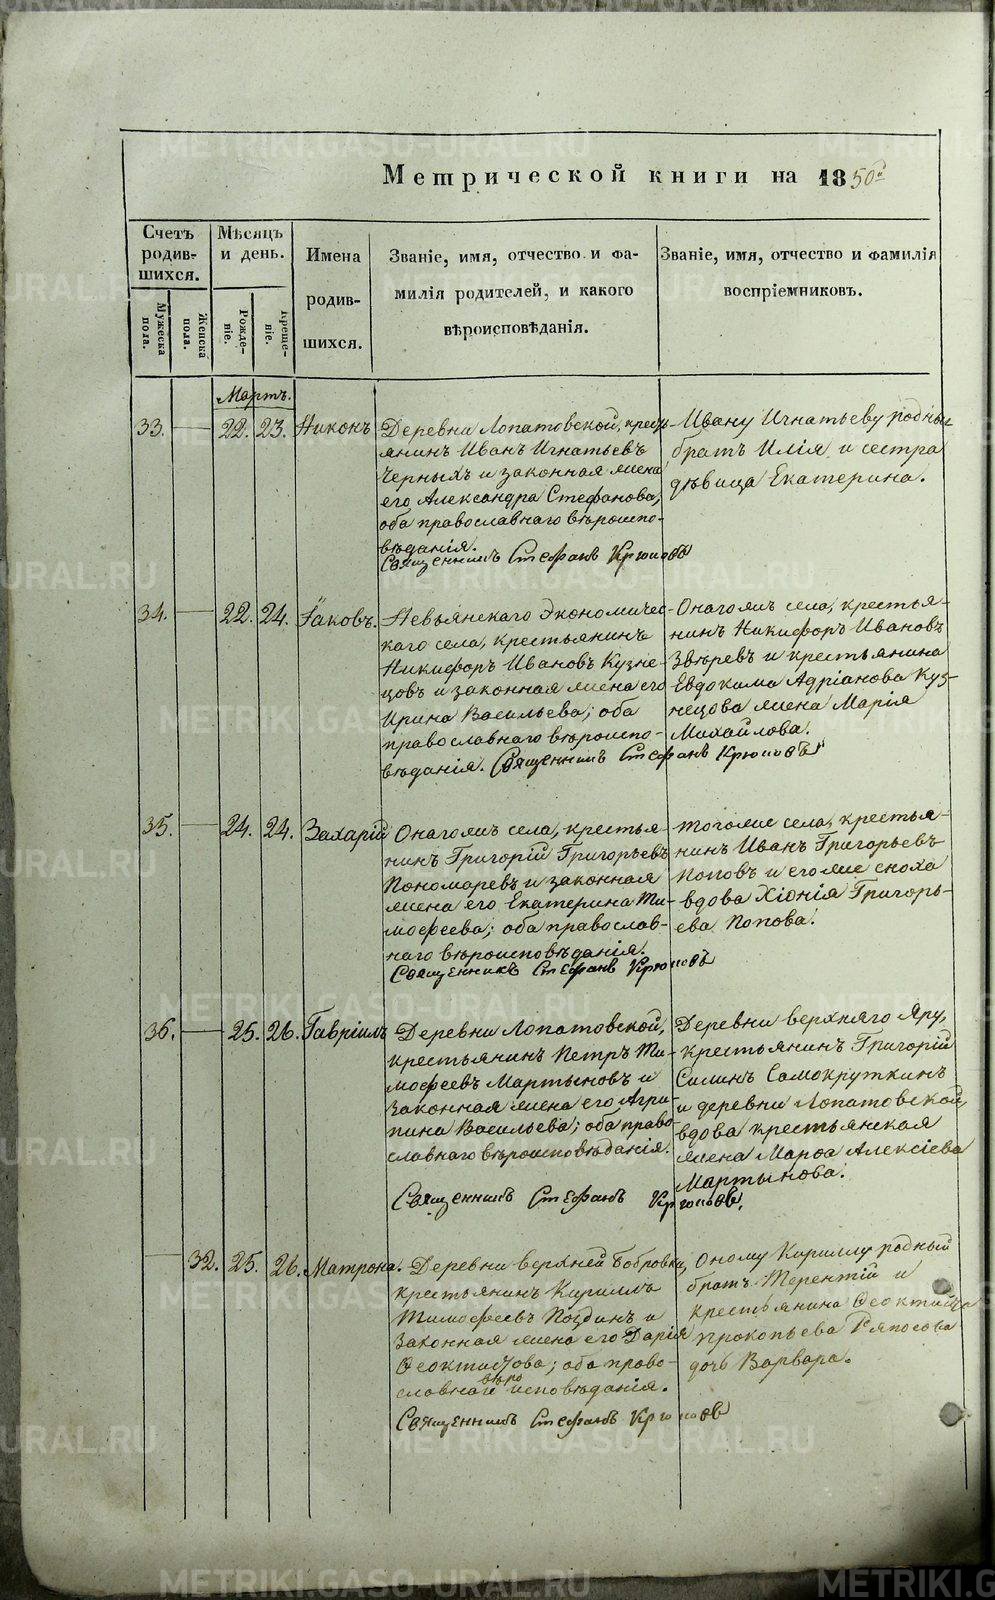 Метрической книги на 1850й
Счетъ родив-шихся.
Мѣсяцъ и день.
Имена родив-шихся.
Званіе, имя, отчество и фа-
милія родителей, и какого
вѣроисповѣданія.
Званіе, имя, отчество и фамилія
воспріемниковъ.
Мужеска пола.
Женска пола.
Рожде-ніе.
Креще-ніе.
Мартъ.
33. 22. 23. Никонъ
Деревни Лопатовской, кресть-
янинъ Иванъ Игнатьевъ
Черныхъ и законная жена
его Александра Стефанова,
оба православнаго вѣроиспо-
вѣданія.
Священникъ Стефанъ Крюковъ
Ивану Игнатьеву родный
братъ Илія и сестра
дѣвица Екатерина.
34. 22. 24. Іаковъ.
Невьянскаго Экономичес-
каго села, крестьянинъ
Никифоръ Ивановъ Кузне-
цовъ и законная жена его
Ирина Васильева; оба
православнаго вѣроиспо-
вѣданія. Священникъ Стефанъ Крюковъ
Онагожъ села, крестья-
нинъ Никифоръ Ивановъ
Звѣревъ и крестьянина
Евдокима Адріанова Куз-
нецова жена Марія
Михайлова.
35. 24. 24. Захарій
Онагожъ села, крестья-
нинъ Григорій Григорьевъ
Пономаревъ и законная
жена его Екатерина Ти-
мофеева; оба православ-
наго вѣроисповѣданія.
Священникъ Стефанъ Крюковъ
Тогоже села, крестья-
нинъ Иванъ Григорьевъ
Поповъ и его же сноха
вдова Хіонія Григорь-
ева Попова.
36. 25. 26. Гавріилъ
Деревни Лопатовской,
крестьянинъ Петръ Ти-
мофеевъ Мартыновъ и
законная жена его Агри-
пина Васильева; оба право-
славнаго вѣроисповѣданія.
Священникъ Стефанъ Крюковъ.
Деревни верхняго Яру,
крестьянинъ Григорій
Силинъ Самокруткинъ
и деревни Лопатовской
вдова крестьянская
жена Марѳа Алексіева
Мартынова.
32. 25. 26. Матрона.
Деревни верхней Бобровки,
крестьянинъ Кириллъ
Тимофеевъ Поздинъ и
законная жена его Дарія
Ѳеоктистова; оба право-
славнаго вѣроисповѣданія.
Священникъ Стефанъ Крюковъ
Оному Кириллу родный
братъ Терентій и
крестьянина Ѳеоктиста
Прокопьева Ряпосова
дочь Варвара.
METRIKI.GASO-URAL.RU